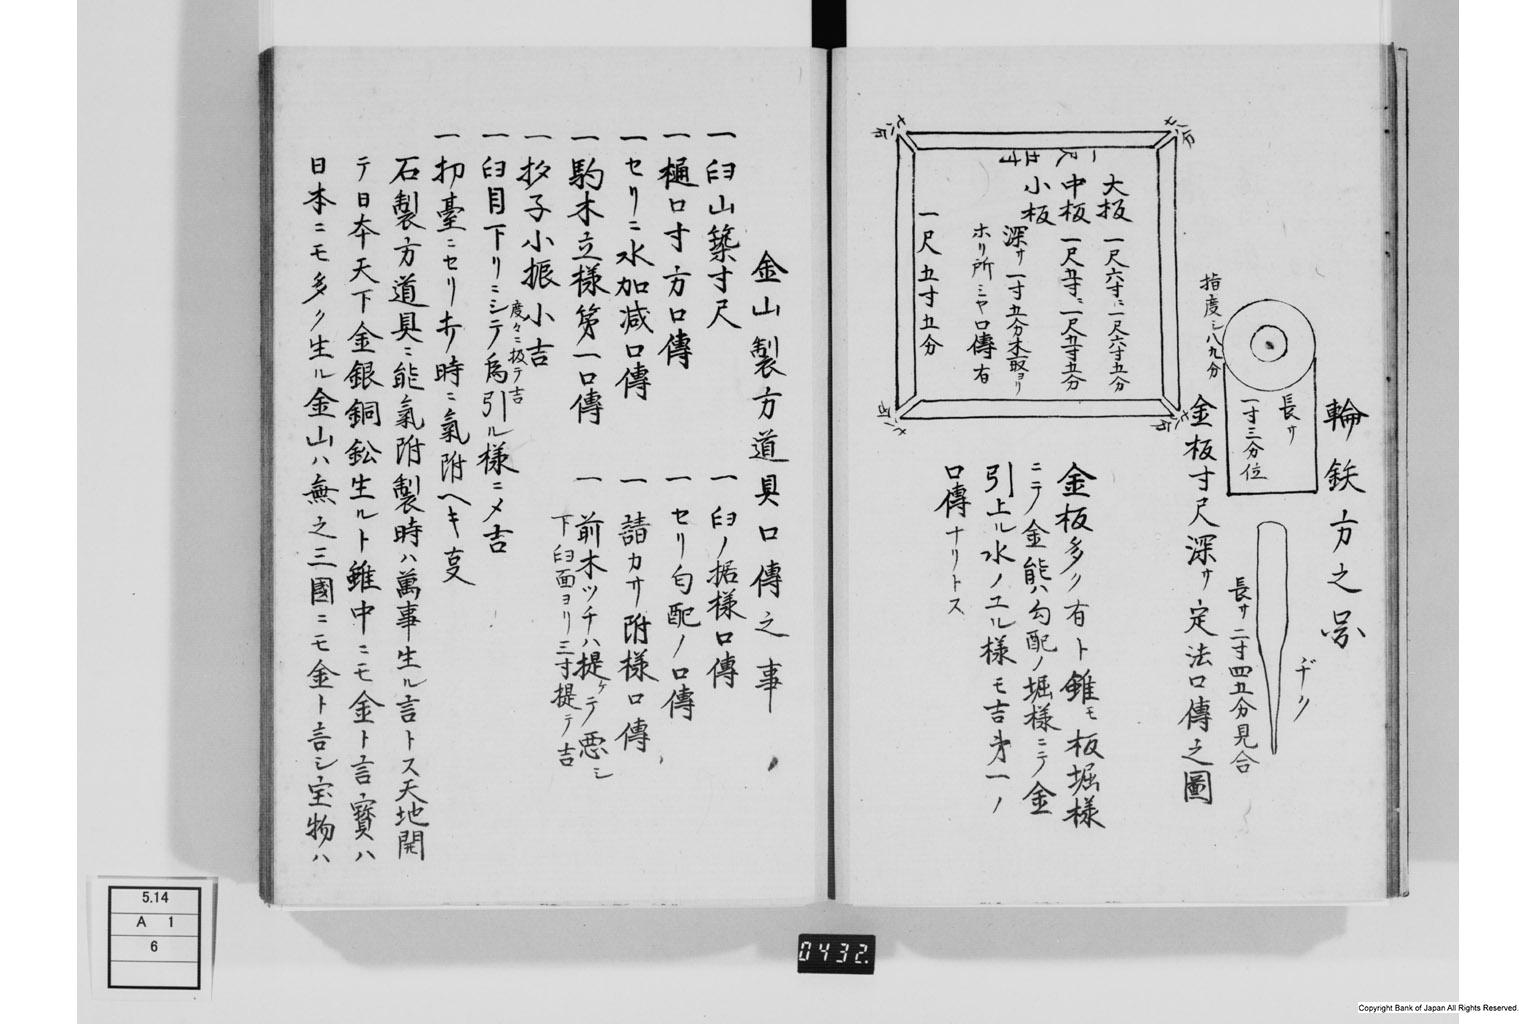 輪鉄方之圖
長サ
一寸三分位
指度シ八九分
ヂク
長サ二寸四五分見合
金板寸尺深サ定法口傳之圖
大板 一尺六寸ニ一尺六寸五分
中板 一尺五寸ニ一尺五寸五分
小板
深サ一寸五分木取ヨリ
ホリ所ミヤ口傳有
一尺五寸五分
一尺五寸
金板多ク有ト雖モ板堀様
ニテ金能ハ勾配ノ堀様ニテ金
引上ル水ノユル様モ吉第一ノ
口傳ナリトス
金山製方道具口傳之事
一臼山築寸尺
一臼ノ据様口傳
一樋口寸方口傳
一セリ勾配ノ口傳
一セリニ水加减口傳
一請カサ附様口傳
一駒木立様第一口傳
一前木ツチハ提ケテ悪シ
下臼面ヨリ三寸提テ吉
一杁子小振小吉
度々ニ扱テ吉
一臼目下リニシテ為引ル様ニメ吉
一扨臺ニセリ木ノ時ニ氣附ヘキ支
石製方道具ニ能氣附製時ハ萬事生ル言トス天地開
テ日本天下金銀銅鈆生ルト雖中ニモ金ト言寶ハ
日本ニモ多ク生ル金山ハ無之三國ニモ金ト言シ宝物ハ
5.14
A 1
6
0432
Copyright Bank of Japan All Rights Reserved.